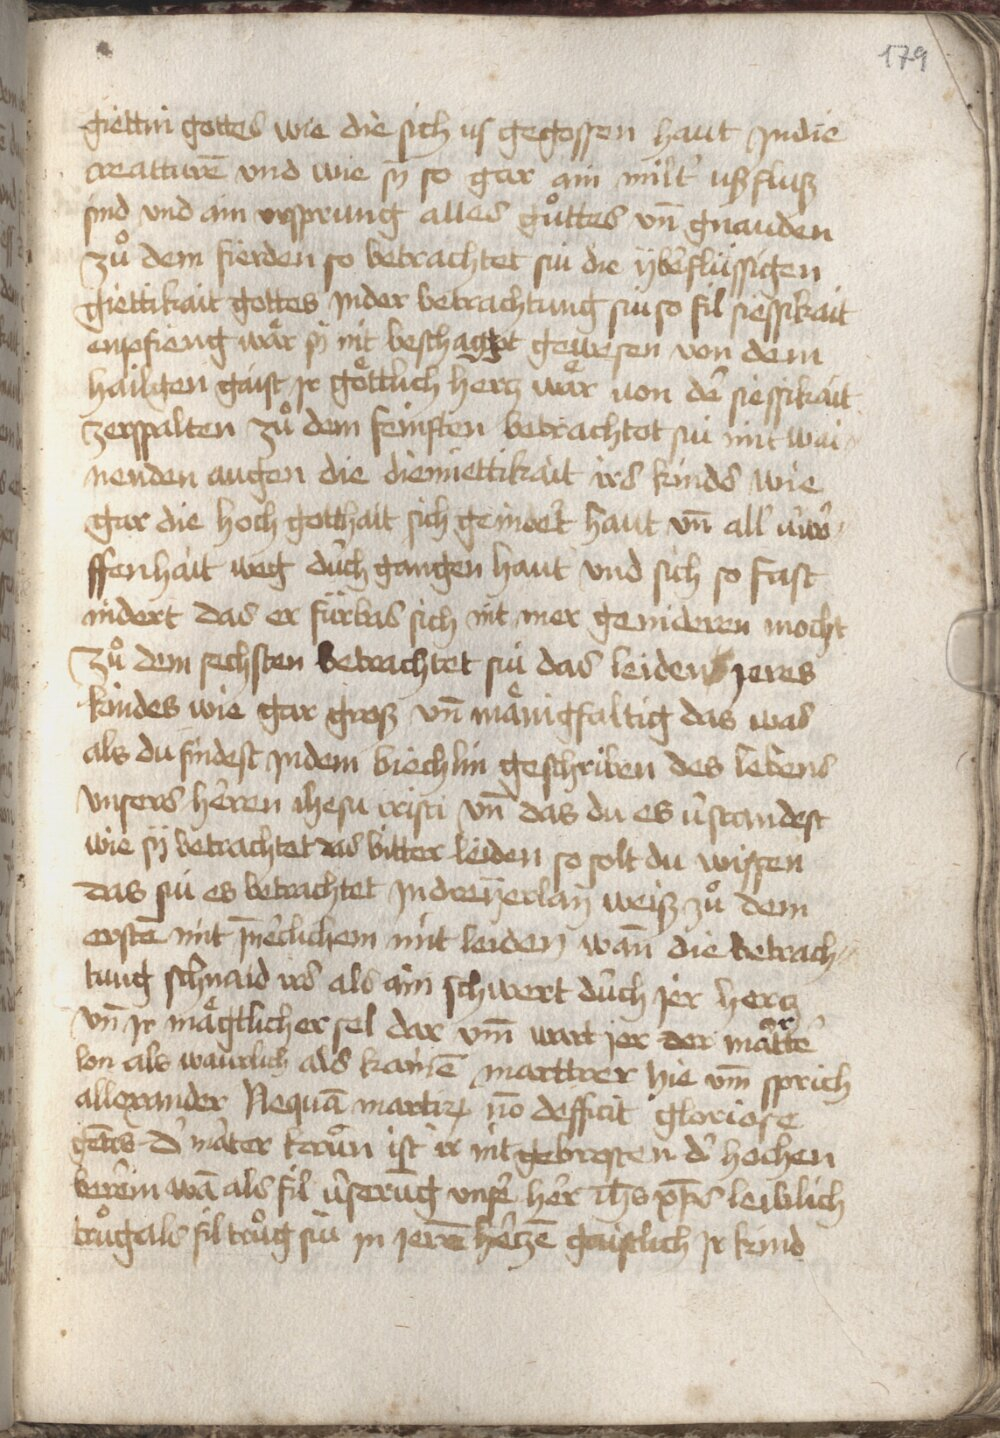 179
giettin gottes wie die sich us gegossen haut Jn die
creatturē vnd wie sÿ so gar ain milt ußfluß
sind vnd ain vrsprung alles gůttes vn̄ gnauden
zů dem fierden so betrachtet sui die ÿberflüssigen
giettikait gottes Jn der betrachtung sui so fil siessikait
enpfieng wår sÿ nit gewesen von dem
hailgen gaist Jr göttlich hertz wår von der siessikait
zerspalten zů dem feinften betrachtot sui mit wai
nenden augen die diemiettikait irs kinds wie
gar die hoch gotthait sich geindert haut vn̄ all
ffenhait weg duch gangen haut vnd sich so fast
indert das er fürbas sich nit mer genideren mocht
zů dem sechsten betrachtet sui das leiden jeres
kindes wie gar groß vn̄ månigfaltig das was
als du findest Jn dem biechlin geschriben des lebens
vnsers herren ihesu cristi vn̄ das du es v̄standest
wie sÿ betrachtet das bitter leiden so solt du wissen
das sui es betrachtet Jn dreÿerlaÿ weiß zů dem
erstē mit mit leiden wan̄ die betrach
tung schnaid irs als ain schwert duch jer hertz
vn̄ Jr mågtlicher sel dar vm̄ wart jer der
lon als waurlich als kainē marttrer hie vm̄ sprich
allexander Nequā martirꝫ nō defficit gloriose
d' måter ist ir nit gebresten d' hochen
wā als fil vnser her ih̄s xp̄s leiblich
trůg als fil trůg sui in jerē hertzē gaistlich Jr kind